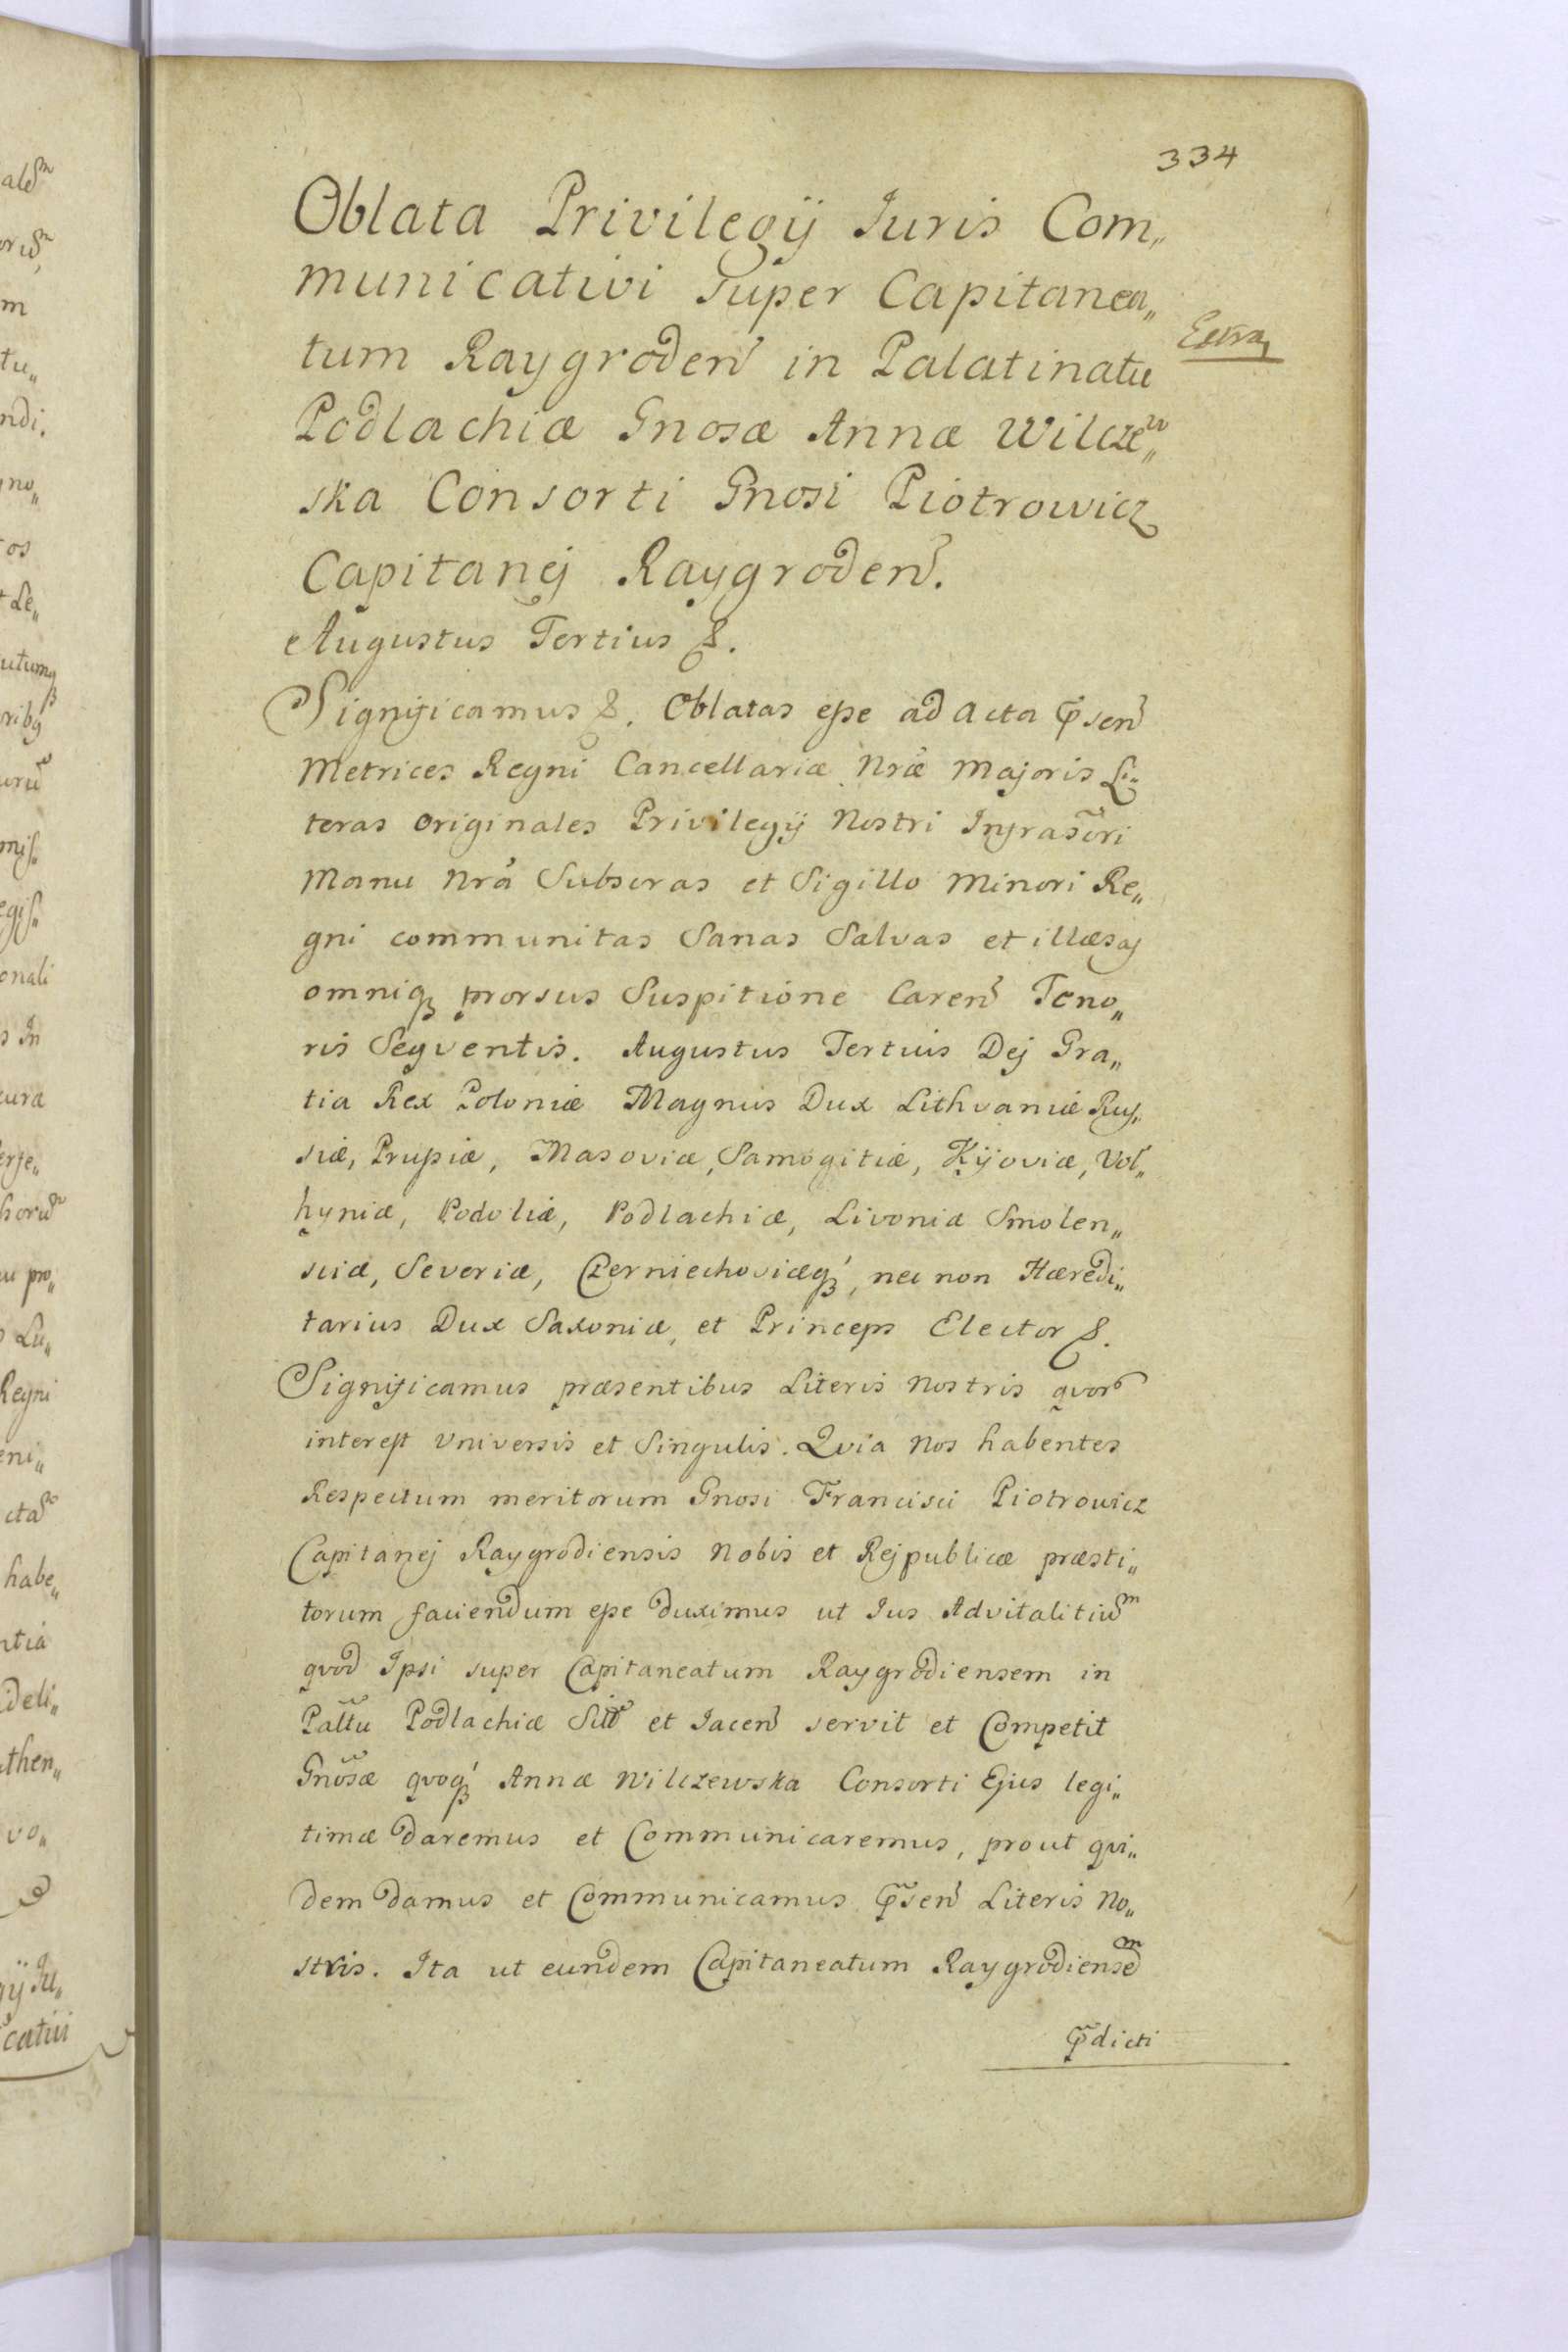 334
Oblata Privilegij Iuris Com„
municativi super Capitanea„
tum Raygroden̄ in Palatinatu
Podlachiæ Gnosæ Annæ Wilcze͏ʷ„
ska Consorti Gnosi Piotrowicz
Capitanej Raygroden̄.
Augustus Tertius &.
Significamus &. Oblatas esse ad Acta p̃sen̄
Metrices Regni Cancellariæ Nræ Majoris Li„
teras Originales Privilegij Nostri Infrascr̃i
Manu Nrâ Subscras et Sigillo Minori Re„
gni communitas Sanas Salvas et illæsas
omniq̨ prorsus Suspitione Caren̄ Teno„
ris Seqventis. Augustus Tertius Dej Gra„
tia Rex Poloniæ Magnus Dux Lithvaniæ Rus„
siæ, Prussiæ, Masoviæ, Samogitiæ, Kijoviæ, Vol„
hyniæ, Podoliæ, Podlachiæ, Livoniæ Smolen„
sciæ, Severiæ, Czerniechoviæq̨, nec non Hæredi„
tarius Dux Saxoniæ, et Princeps Elector &.
Significamus præsentibus Literis Nostris qvorũ
interest Vniversis et Singulis. Qvia Nos habentes
Respectum meritorum Gnosi Francisci Piotrowicz
Capitanej Raygrodiensis Nobis et Rejpublicæ præsti„
torum faciendum esse duximus ut Ius Advitalitiũm
qvod Ipsi super Capitaneatum Raygrodiensem in
Pal̃tu Podlachiæ Sitũ et Iacen̄ servit et Competit
Gnõsæ qvoq̨ Annæ Wilczewska Consorti Ejus legi„
timæ daremus et Communicaremus, prout qvi„
dem damus et Communicamus p̃sen̄ Literis No„
stris. Ita ut eundem Capitaneatum Raygrodiensem
p̃dicti